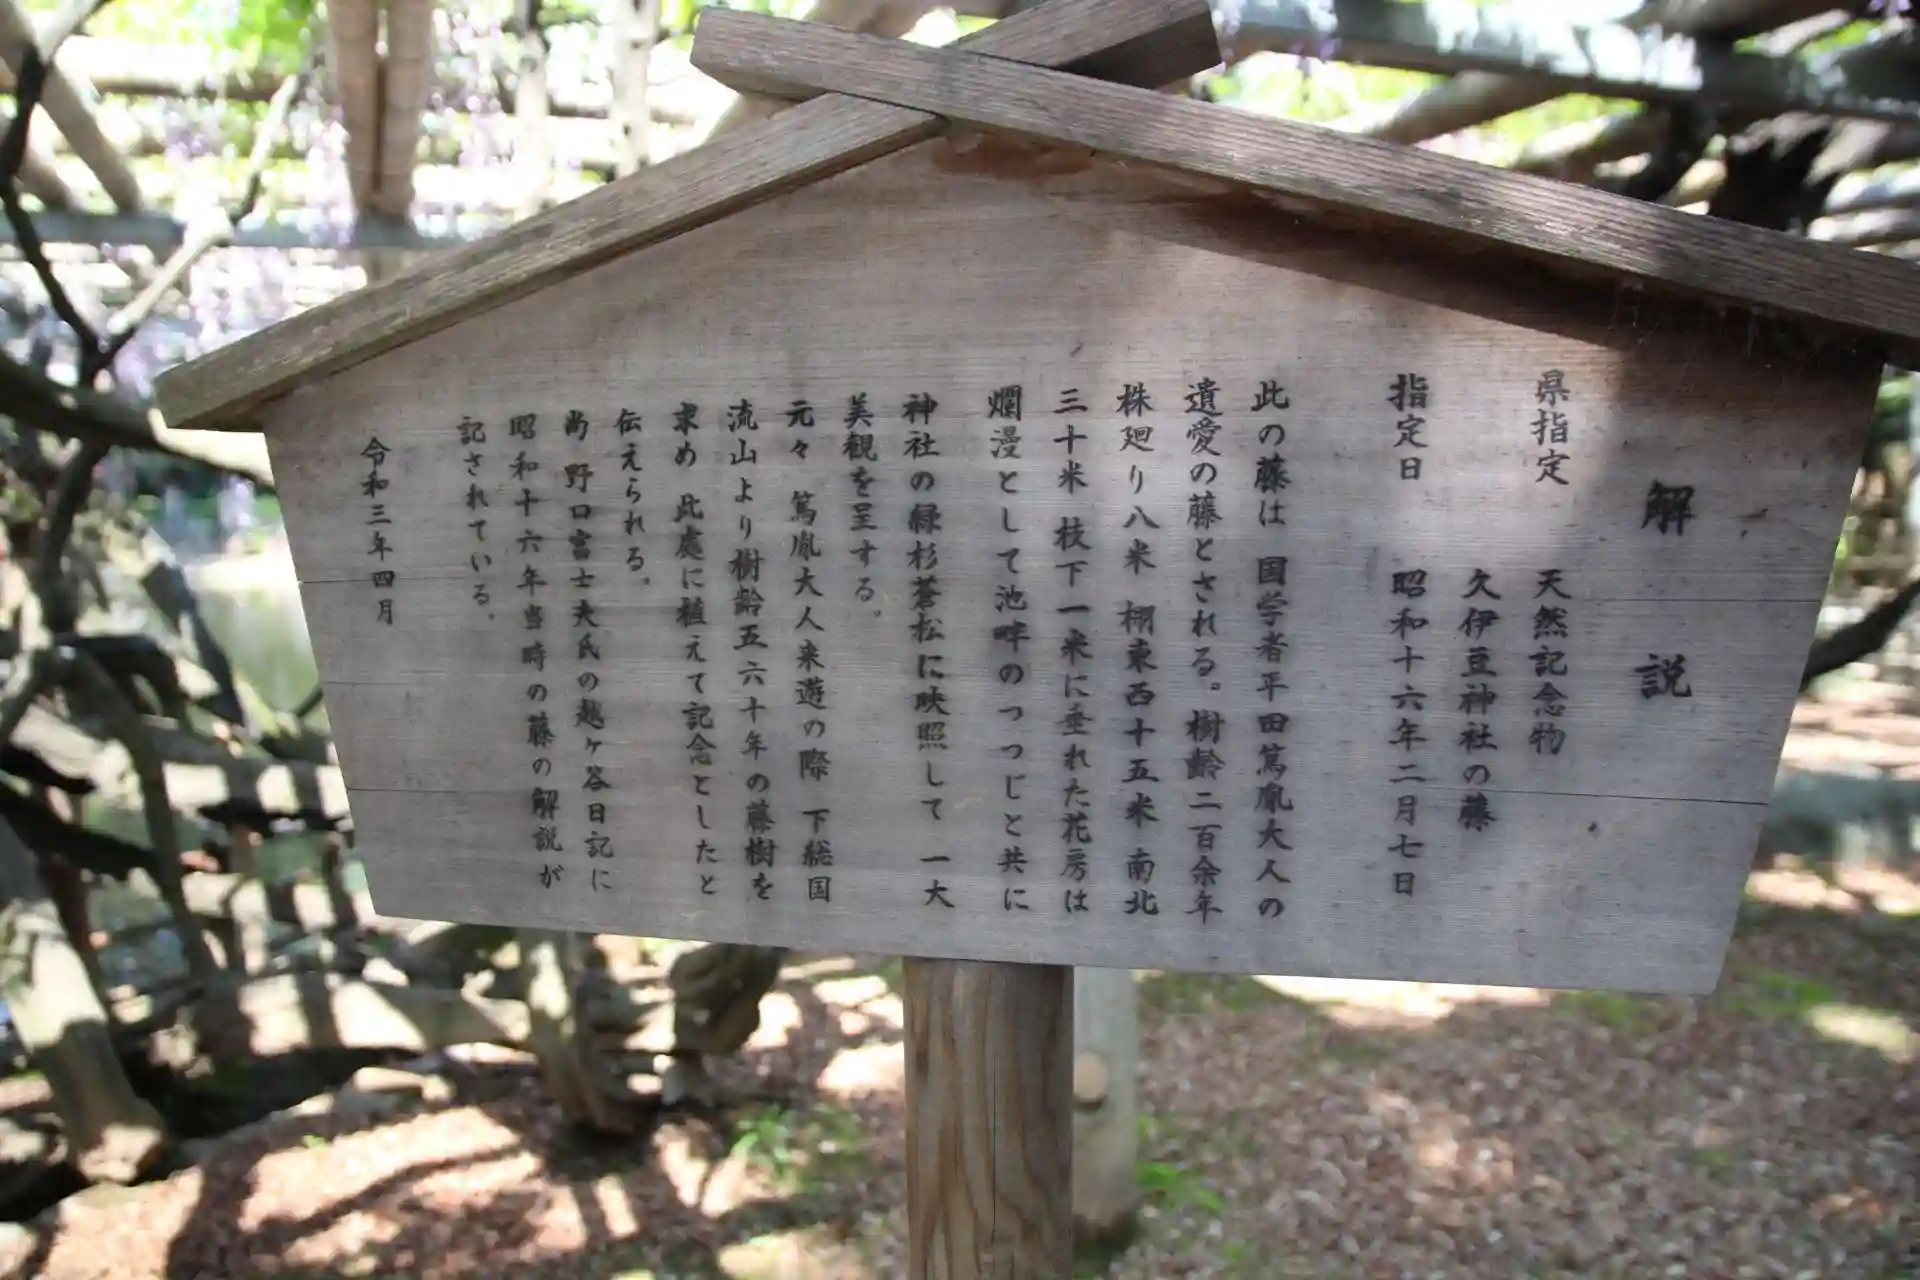 解説
県指定 天然記念物
久伊豆神社の藤
指定日 昭和十六年二月七日
此の藤は 国学者平田篤胤大人の
遺愛の藤とされる。樹齢二百余年
株廻り八米 棚東西十五米 南北
三十米 枝下一米に垂れた花房は
爛漫として池畔のつつじと共に
神社の緑杉蒼松に映照して 一大
美観を呈する。
元々 篤胤大人来遊の際 下総国
流山より樹齢五六十年の藤樹を
求め 此處に植えて記念としたと
伝えられる。
尚 野口富士夫氏の越ヶ谷日記に
昭和十六年当時の藤の解説が
記されている。
令和三年四月